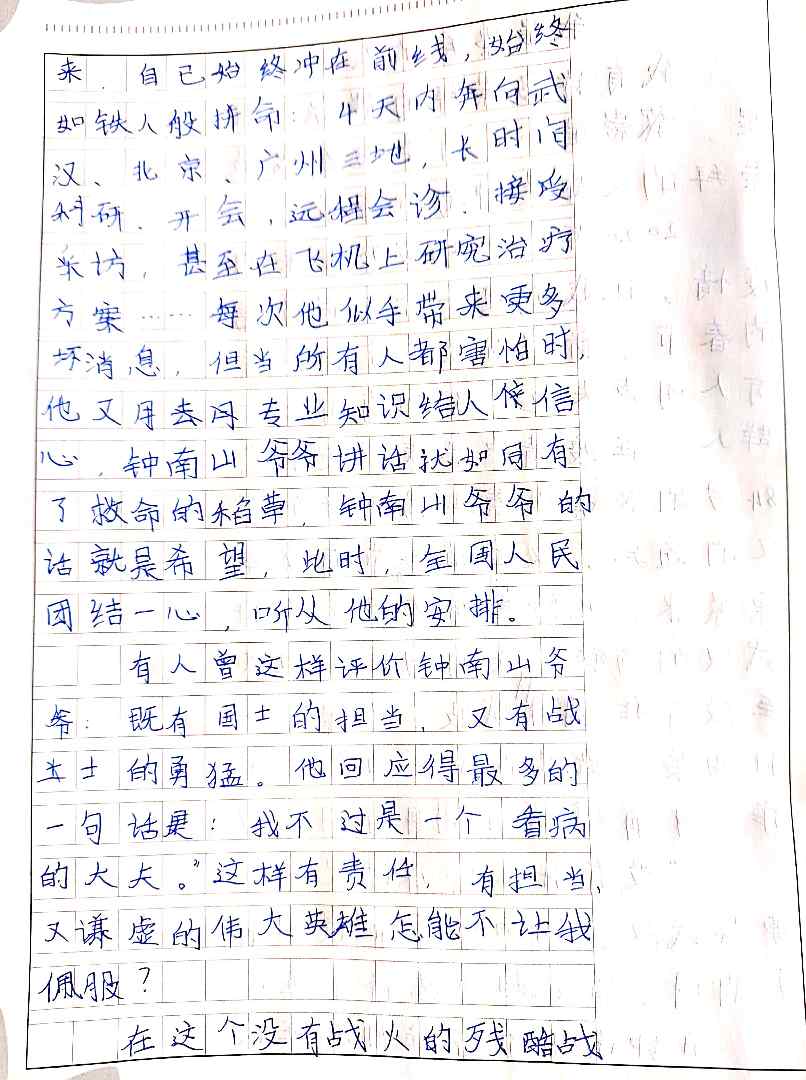 来.自己始终冲在前线,始终
如铁人般拼命:4天内奔向武
汉、北京、广州三地,长时间
科研、开会,远程会诊.接受
采访,甚至在飞机上研究治疗
方案……每次他似乎带来更多
坏消息,但当所有人都害怕时,
他又用专业知识给人信
心.钟南山爷爷讲话就如同有
了救命的稻草,钟南山爷爷的
话就是希望,此时,全国人民
团结一心,听从他的安排。
有人曾这样评价钟南山爷
爷:既有国士的担当,又有战
士的勇猛。他回应得最多的
一句话是:我不过是一个看病
的大夫。”这样有责任,有担当,
又谦虚的伟大英雄怎能不让我
佩服?
在这个没有战火的残酷战